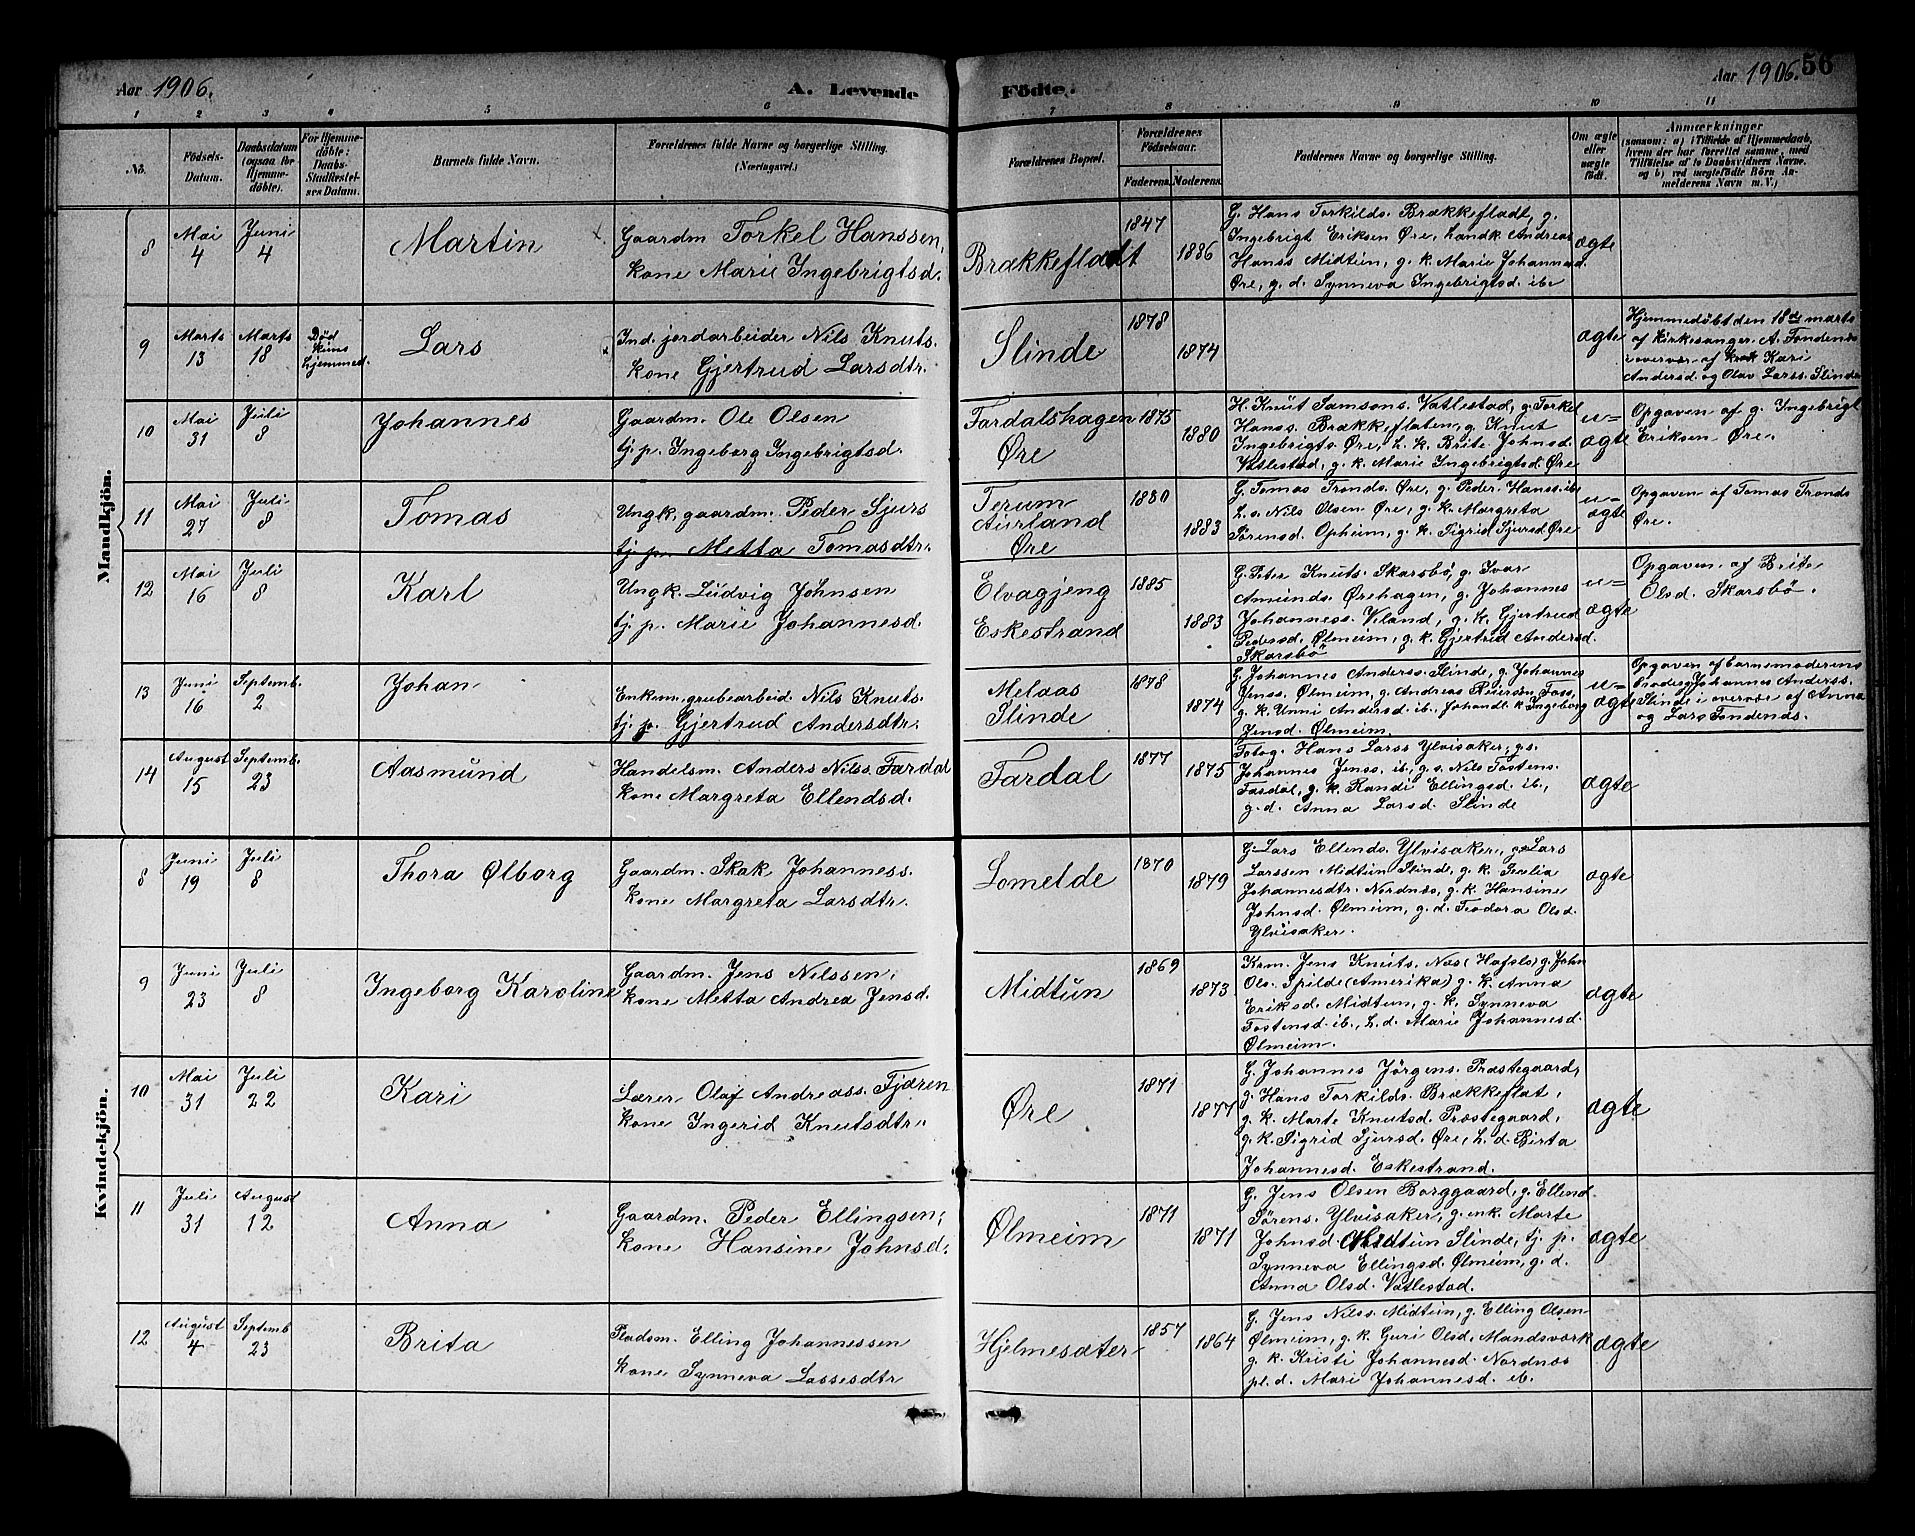 Aar 1906. A. Levende Födte. Aar 1906. 56
1 2 3 4 5 6 7 8 9 10 11
No. Födsels-Datum. Daabsdatum (ogsaa for Hjemme-döbte). For Hjemme-döbte: Daabs-Stadfæstel-ses Datum. Barnets fulde Navn. Forældrenes fulde Navne og borgerlige Stilling. (Næringsvei.) Forældrenes Bopæl. Forældrenes Födselsaar. Faderens. Moderens. Faddernes Navne og borgerlige Stilling. Om ægte eller uægte födt. Anmærkninger (saasom: a) i Tilfælde af Hjemmedaab, hvem der har forrettet samme, med Tilföielse af to Daabsvidners Navne, og b) ved uægtefödte Börn Anmelderens Navn m. V.)
Mandkjön.
8 Mai 4 Juni 4 Martin
Gaardm. Torkel Hanssen,
kone Marie Ingebrigtsd.
Brækkefladt 1847 1886
G. Hans Torkilds. Brækkefladt, g.
Ingebrigt Eriksen Øre, Landk. Andreas
Hanss Midtun, g. k. Marie Johannesd.
Øre, g. d. Synneva Ingebrigtsd. ib.
ægte
9 Marts 13 Marts 18 Död kuns hjemmed. Lars
Ind. jordarbeider Nils Knuts.
kone Gjertrud Larsdtr.
Slinde 1878 1874
ægte
Hjemmedöbt den 18de marts
af kirkesanger A. Tondenes
i overvær af Kari
Andersd. og Olav Larss. Slinde
10 Mai 31 Juli 8 Johannes
Gaardm. Ole Olsen
tj. p. Ingeborg Ingebrigtsd.
Fardalshagen
Øre 1875 1880
H. Knut Samsons. Vatlestad, g. Torkel
Hanss. Brækkeflaten, g. Knut
Ingebrigts. Øre, h. k. Brite Johnsd.
Vatlestad, g. k. Marie Ingebrigtsd. Øre
u=ægte
Opgaven af g. Ingebrigt
Eriksen Øre.
11 Mai 27 Juli 8 Tomas
Ungk. gaardm. Peder Sjurs
tj. p. Metta Tomasdtr.
Terum
Aurland
Øre 1880 1883
G. Tomas Tronds. Øre, g. Peder Hanss. ib.
h. s. Nils Olsen Øre, g. k. Margreta
Sørensd. Opheim, g. k. Sigrid Sjursd. Øre
u=ægte
Opgaven af Tomas Tronds
Øre.
12 Mai 16 Juli 8 Karl
Ungk. Ludvig Johnsen
tj. p. Marie Johannesd.
Elvagjeng
Eskestrand 1885 1883
G. Peter Knuts. Skarsbø, g. Ivar
Amunds. Ørehagen, g. Johannes
Johanness. Veland, g. k. Gjertrud
Pedersd. Ølmeim, g. k. Gjertrid Andersd.
Skarsbø
u=ægte
Opgaven af Brite
Olsd. Skarsbø.
13 Juni 16 Septemb. 2 Johan
Enkem. grubearbeid. Nils Knuts.
tj. p. Gjertrud Andersdtr.
Melaas
Slinde 1878 1874
G. Johannes Anderss. Slinde, g. Johannes
Jenss. Ølmeim, g. Andreas Reiersen Foss,
g. k. Unni Andersd. ib., Johandl. k. Ingeborg
Jensd. Ølmeim.
u=ægte
Opgaven af barnemoderens
broder Johannes Anderss.
Slinde i overvær af Anna
og Lars Tondenes.
14 August 15 Septemb. 23 Aasmund
Handelsm. Anders Nilss. Fardal
kone Margreta Ellendsd.
Fardal 1877 1875
Fotog. Hans Larss Ylvisaker, g.s.
Johannes Jenss. ib., g. s. Nils Tostens.
Fardal, g. k. Randi Ellingsd. ib.,
g. d. Anna Larsd. Slinde
ægte
Kvindekjön.
8 Juni 19 Juli 8 Thora Ølborg
Gaardm. Skak Johanness.
kone Margreta Larsdtr.
Lomelde 1870 1879
G. Lars Ellends. Ylvisaker, g. Lars
Larssen Midtun Slinde, g. k. Serlia
Johannesdtr. Nordnæs, g. k. Hansine
Johnsd. Ølmeim, g. d. Teodora Olsd.
Ylvisaker.
ægte
9 Juni 23 Juli 8 Ingeborg Karoline
Gaardm. Jens Nilssen,
kone Metta Andrea Jensd.
Midtun 1869 1873
Krm. Jens Knuts. Næs (Hafslo) g. John
Ols. Spilde (Amerika) g. k. Anna
Eriksd. Midtun, g. k. Synneva
Tostensd. ib., h. d. Marie Johannesd.
Ølmeim.
ægte
10 Mai 31 Juli 22 Kari
Lærer Olaf Andreass. Fjæren
kone Ingerid Knutsdtr.
Øre 1871 1877
G. Johannes Jörgens. Præstegaard,
g. Hans Torkilds. Brækkeflat,
g. k. Marte Knutsd. Præstegaard,
g. k. Sigrid Sjursd. Øre, h. d. Birta
Johannesd. Eskestrand.
ægte
11 Juli 31 August 12 Anna
Gaardm. Peder Ellingsen,
kone Hansine Johnsd.
Ølmeim 1871 1871
G. Jens Olsen Borggaard, g. Ellend
Sørens. Ylvisaker, g. enk. Marte
Johnsd. Midtun Slinde, tj. p.
Synneva Ellingsd. Ølmeim, g. d.
Anna Olsd. Vatlestad.
ægte
12 August 4 Septemb 23 Brita
Pladsm. Elling Johannessen
kone Synneva Lassesdtr
Hjelmesæter 1857 1864
G. Jens Nilss. Midtun, g. Elling Olsen
Ølmeim, g. k. Guri Olsd. Mandsværk
g. k. Kristi Johannesd. Nordnæs
pl. d. Mari Johannesd. ib.
ægte